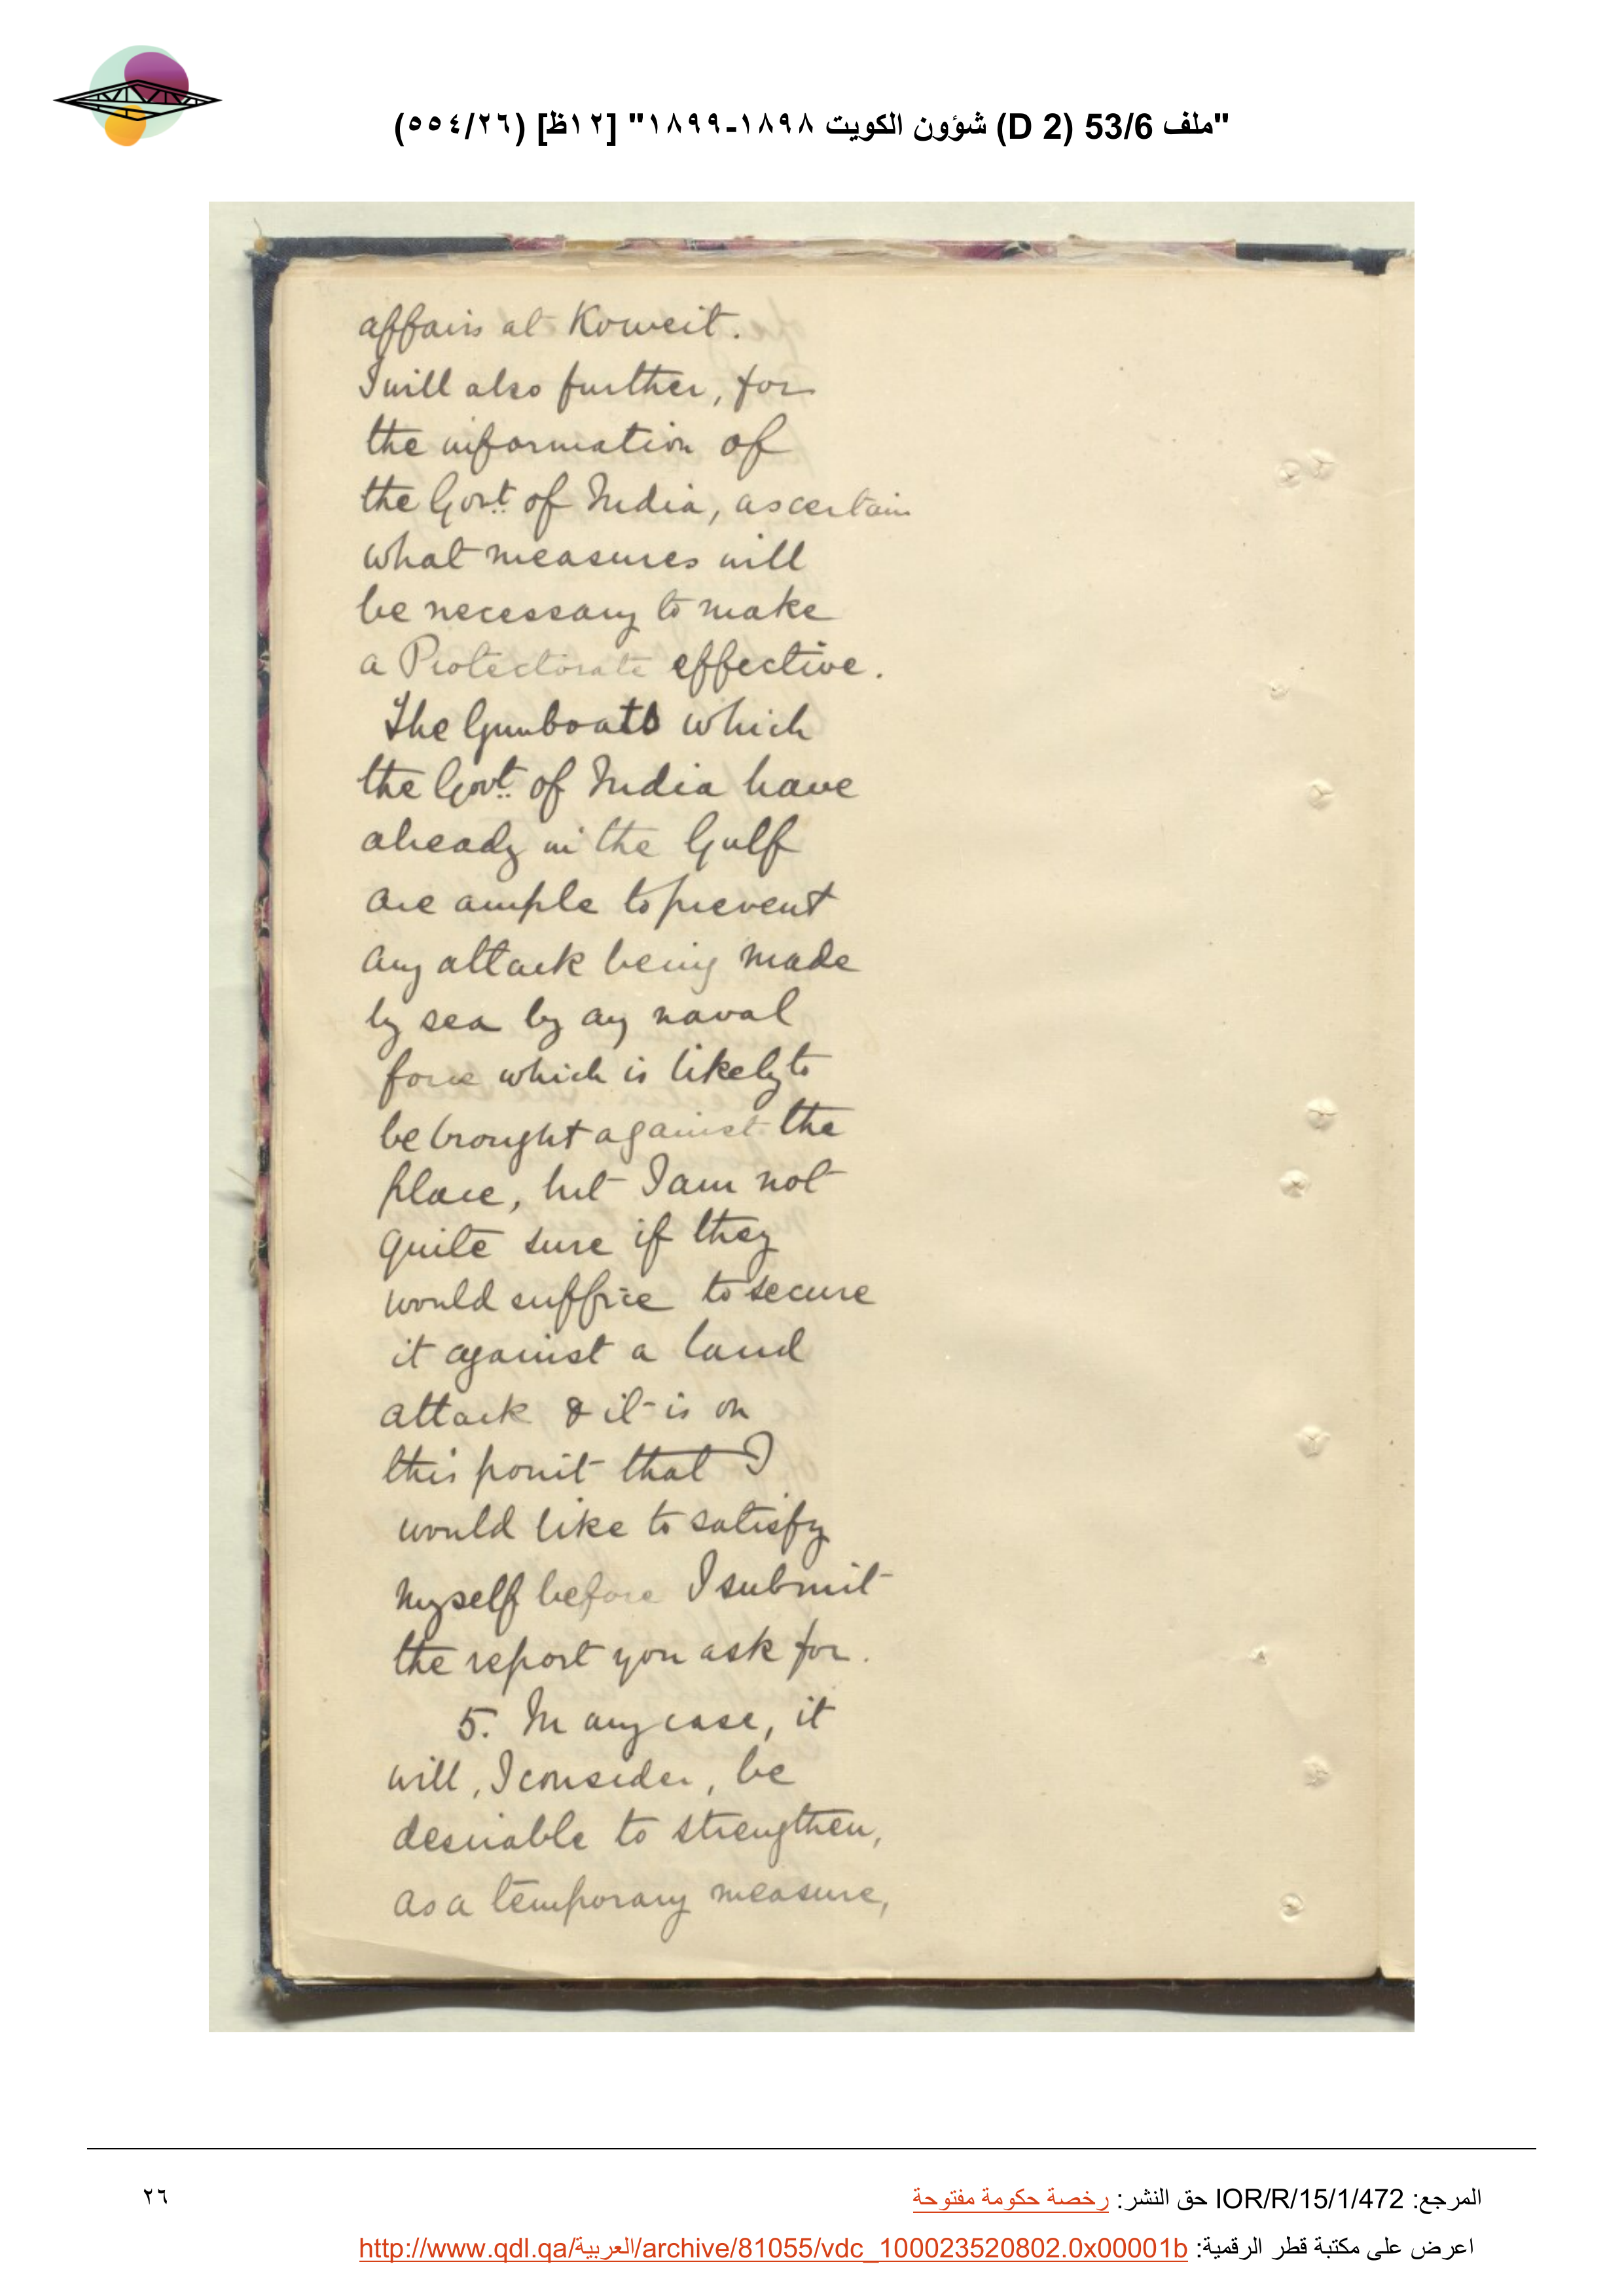 "ملف 53/6 (D 2) شؤون الكويت ١٨٩٨-١٨٩٩" [١٢ظ] (٥٥٤/٢٦)
affairs at Koweit.
I will also further, for
the information of
the Govt. of India, ascertain
what measures will
be necessary to make
a Protectorate effective.
The Gunboats which
the Govt. of India have
already in the Gulf
are ample to prevent
any attack being made
by sea by any naval
force which is likely to
be brought against the
place, but I am not
quite sure if they
would suffice to secure
it against a land
attack & it is on
this point that I
would like to satisfy
myself before I submit
the report you ask for.
5. In any case, it
will, I consider, be
desirable to strengthen,
as a temporary measure,
المرجع: IOR/R/15/1/472 حق النشر: رخصة حكومة مفتوحة
٢٦
اعرض على مكتبة قطر الرقمية: http://www.qdl.qa/العربية/archive/81055/vdc_100023520802.0x00001b